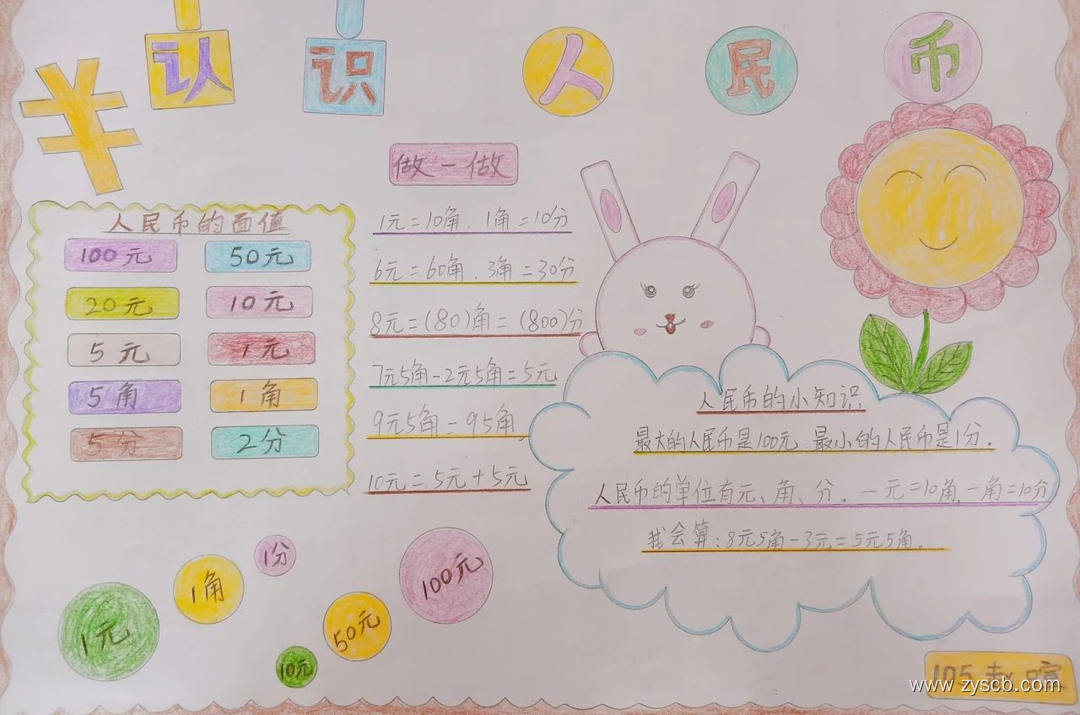 ¥
认识人民币
做一做
人民币的面值
100元 50元
20元 10元
5元 1元
5角 1角
5分 2分
1元=10角.1角=10分
6元=60角.3角=30分
8元=(80)角=(800)分
7元5角-2元5角=5元
9元5角=95角
10元=5元+5元
人民币的小知识
最大的人民币是100元.最小的人民币是1分.
人民币的单位有元、角、分.一元=10角,一角=10分
我会算:8元5角-3元=5元5角.
1元
1角
1分
10元
50元
100元
105
www.zyscb.com